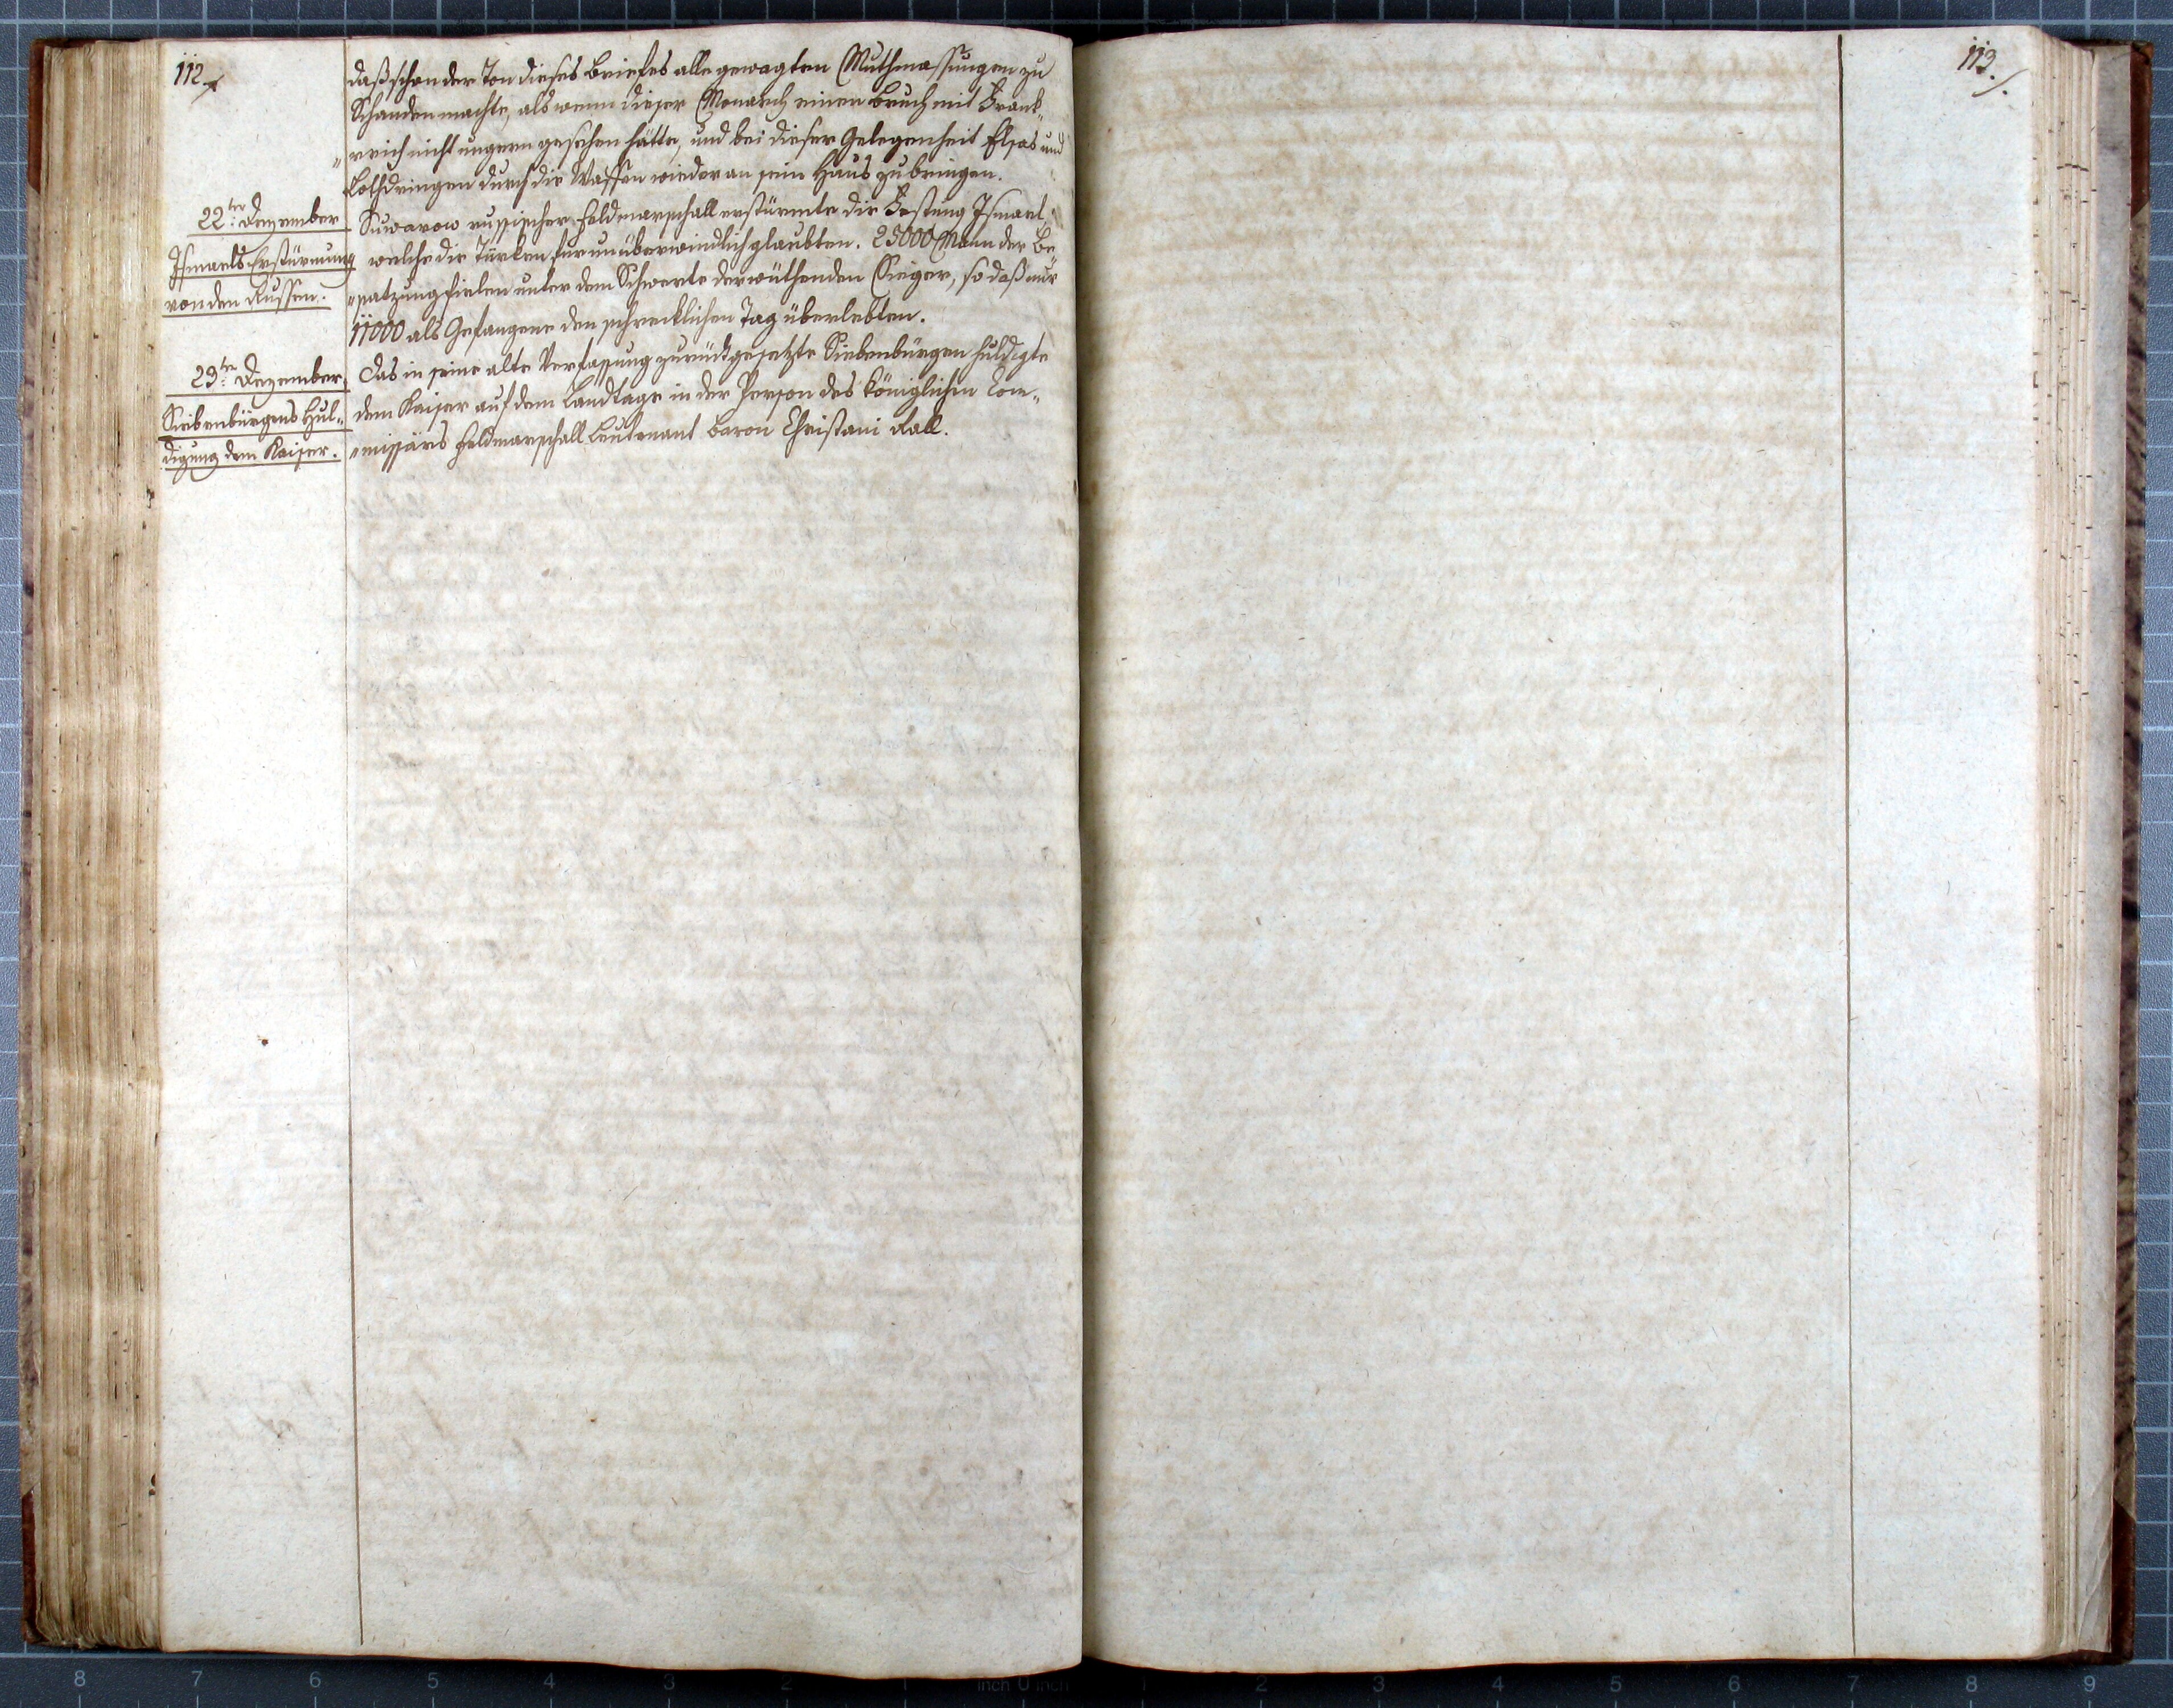 112.
daß schon der Ton dieses Briefes alle gewagten Muthmassungen zu
Schanden machte, als wenn dieser Monarch einen Bruch mit Frank„
„reich nicht ungern gesehen hätte, und bei dieser Gelegenheit Elsas und
Lothdringen durch die Waffen wieder an sein Haus zu bringen.
22ten Dezember
Ismaels Erstürmung
von den Russen.
Suwarow russischer Feldmarschall erstürmte die Festung Ismael,
welche die Türken für unüberwindlich glaubten. 25000 Mann der Be„
„satzung fielen unter dem Schwerte der wüthenden Sieger, so daß nur
11000 als Gefangene den schrecklichen Tag überlebten.
23ten Dezember
Siebenbürgens Hul„
digung dem Kaiser.
Das in seine alte Verfassung zurückgesetzte Siebenbürgen huldigte
dem Kaiser auf dem Landtage in der Person des königlichen Com„
„missärs Feldmarschall Leutenant Baron Christani Rall.
113.
8 7 6 5 4 3 2 1 inch 0 inch 1 2 3 4 5 6 7 8 9